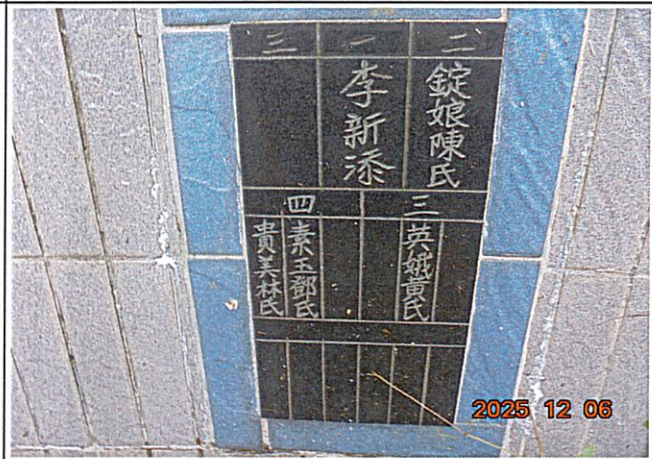 二
一
三
錠娘陳氏
李新添
三
四
英娥黃氏
素玉鄧氏
貴美林氏
2025 12 06